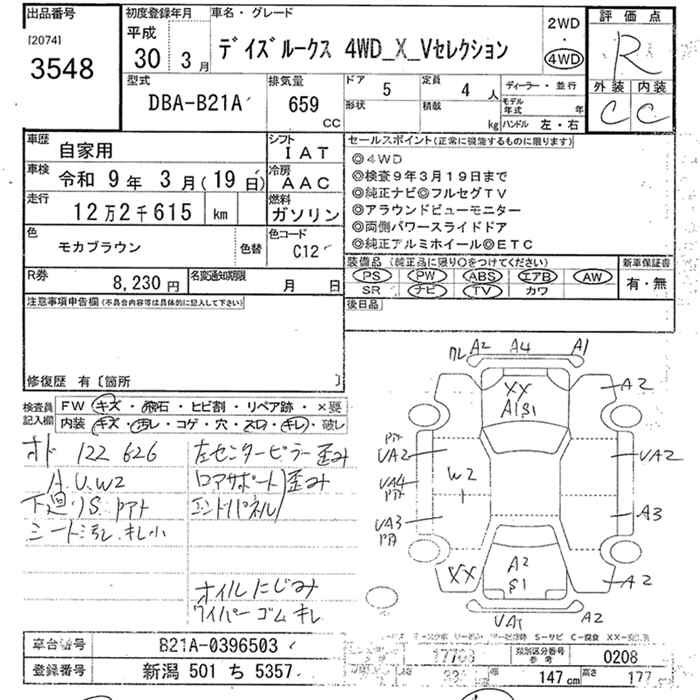 出品番号
[2074]
3548
初度登録年月
平成
30 3月
車名・グレード
デイズルークス 4WD_X_Vセレクション
2WD
・
4WD
評価点
R
外装 内装
C C
型式
DBA-B21A
排気量
659
CC
ドア 5
定員 4 人
形状
積載 kg
ディーラー・並行
モデル年式 年
ハンドル 左・右
車歴
自家用
シフト
IAT
車検
令和 9年 3月(19日)
冷房
AAC
走行
12万2千615 km
燃料
ガソリン
色
モカブラウン
色替
色コード
C12
R券
8,230円
名変通知期限
月 日
セールスポイント(正常に機能するものに限ります)
◎4WD
◎検査9年3月19日まで
◎純正ナビ◎フルセグTV
◎アラウンドビューモニター
◎両側パワースライドドア
◎純正アルミホイール◎ETC
装備品(純正品に限り○をつけてください)
PS PW ABS エアB AW
SR ナビ TV カワ
新車保証書
有・無
後日品
注意事項申告欄(不具合内容等は具体的に記入して下さい)
修復歴 有〔箇所 〕
検査員
記入欄
FW キズ・飛石・ヒビ割・リペア跡・×要
内装 キズ・汚レ・コゲ・穴・スレ・キレ・破レ
オド 122626
A.U.W2
下廻りS.
シート汚レ.キレ小
左センターピラー歪み
ロアサポート歪み
エンドパネル
オイルにじみ
ワイパーゴムキレ
A2 A4 A1
XX
A1S1
A2
UA2
W2
UA2
UA4
UA3
A3
XX
A2
S1
A2
UA1 A2
S-サビ C-腐食
車台番号
B21A-0396503
登録番号
新潟 501 ち 5357
類別区分番号
参考
0208
147cm
高さ
177cm